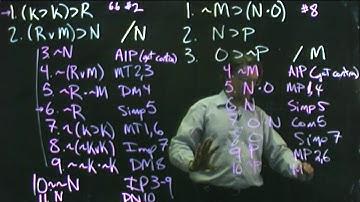 1. (K>K)>R 66 #2
2. (RvM)>N /N
3. ~N AIP (get contra)
4. ~(RvM) MT 2,3
5. ~R·~M DM 4
6. ~R Simp 5
7. ~(K>K) MT 1,6
8. ~(~KvK) Imp 7
9. ~~K·~K DM 8
10 ~~N IP 3-9
11. N DN 10
1. ~M>(N·O) #8
2. N>P
3. O>~P /M
4. ~M AIP (get contra)
5. N·O MP 1,4
6. N Simp 5
O·N Com 5
O Simp 7
9 P MP 2,6
10 P M